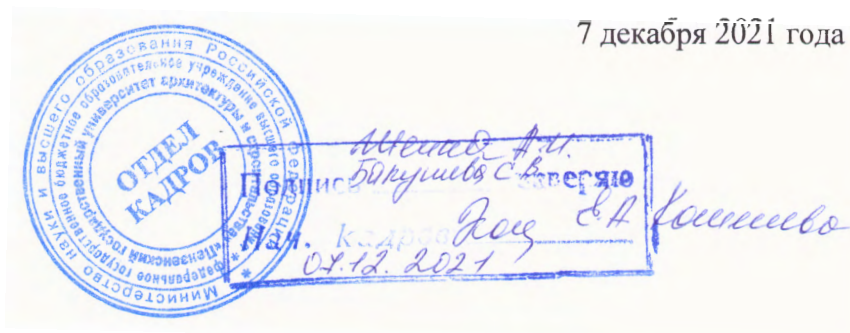 7 декабря 2021 года
Министерство науки и высшего образования Российской Федерации
федеральное государственное бюджетное образовательное учреждение высшего образования
«Пензенский государственный университет архитектуры и строительства»
ОТДЕЛ
КАДРОВ
А.И.
Подпись Бакушева С.В. заверяю
Нач. кадров Е.А.
07.12.2021